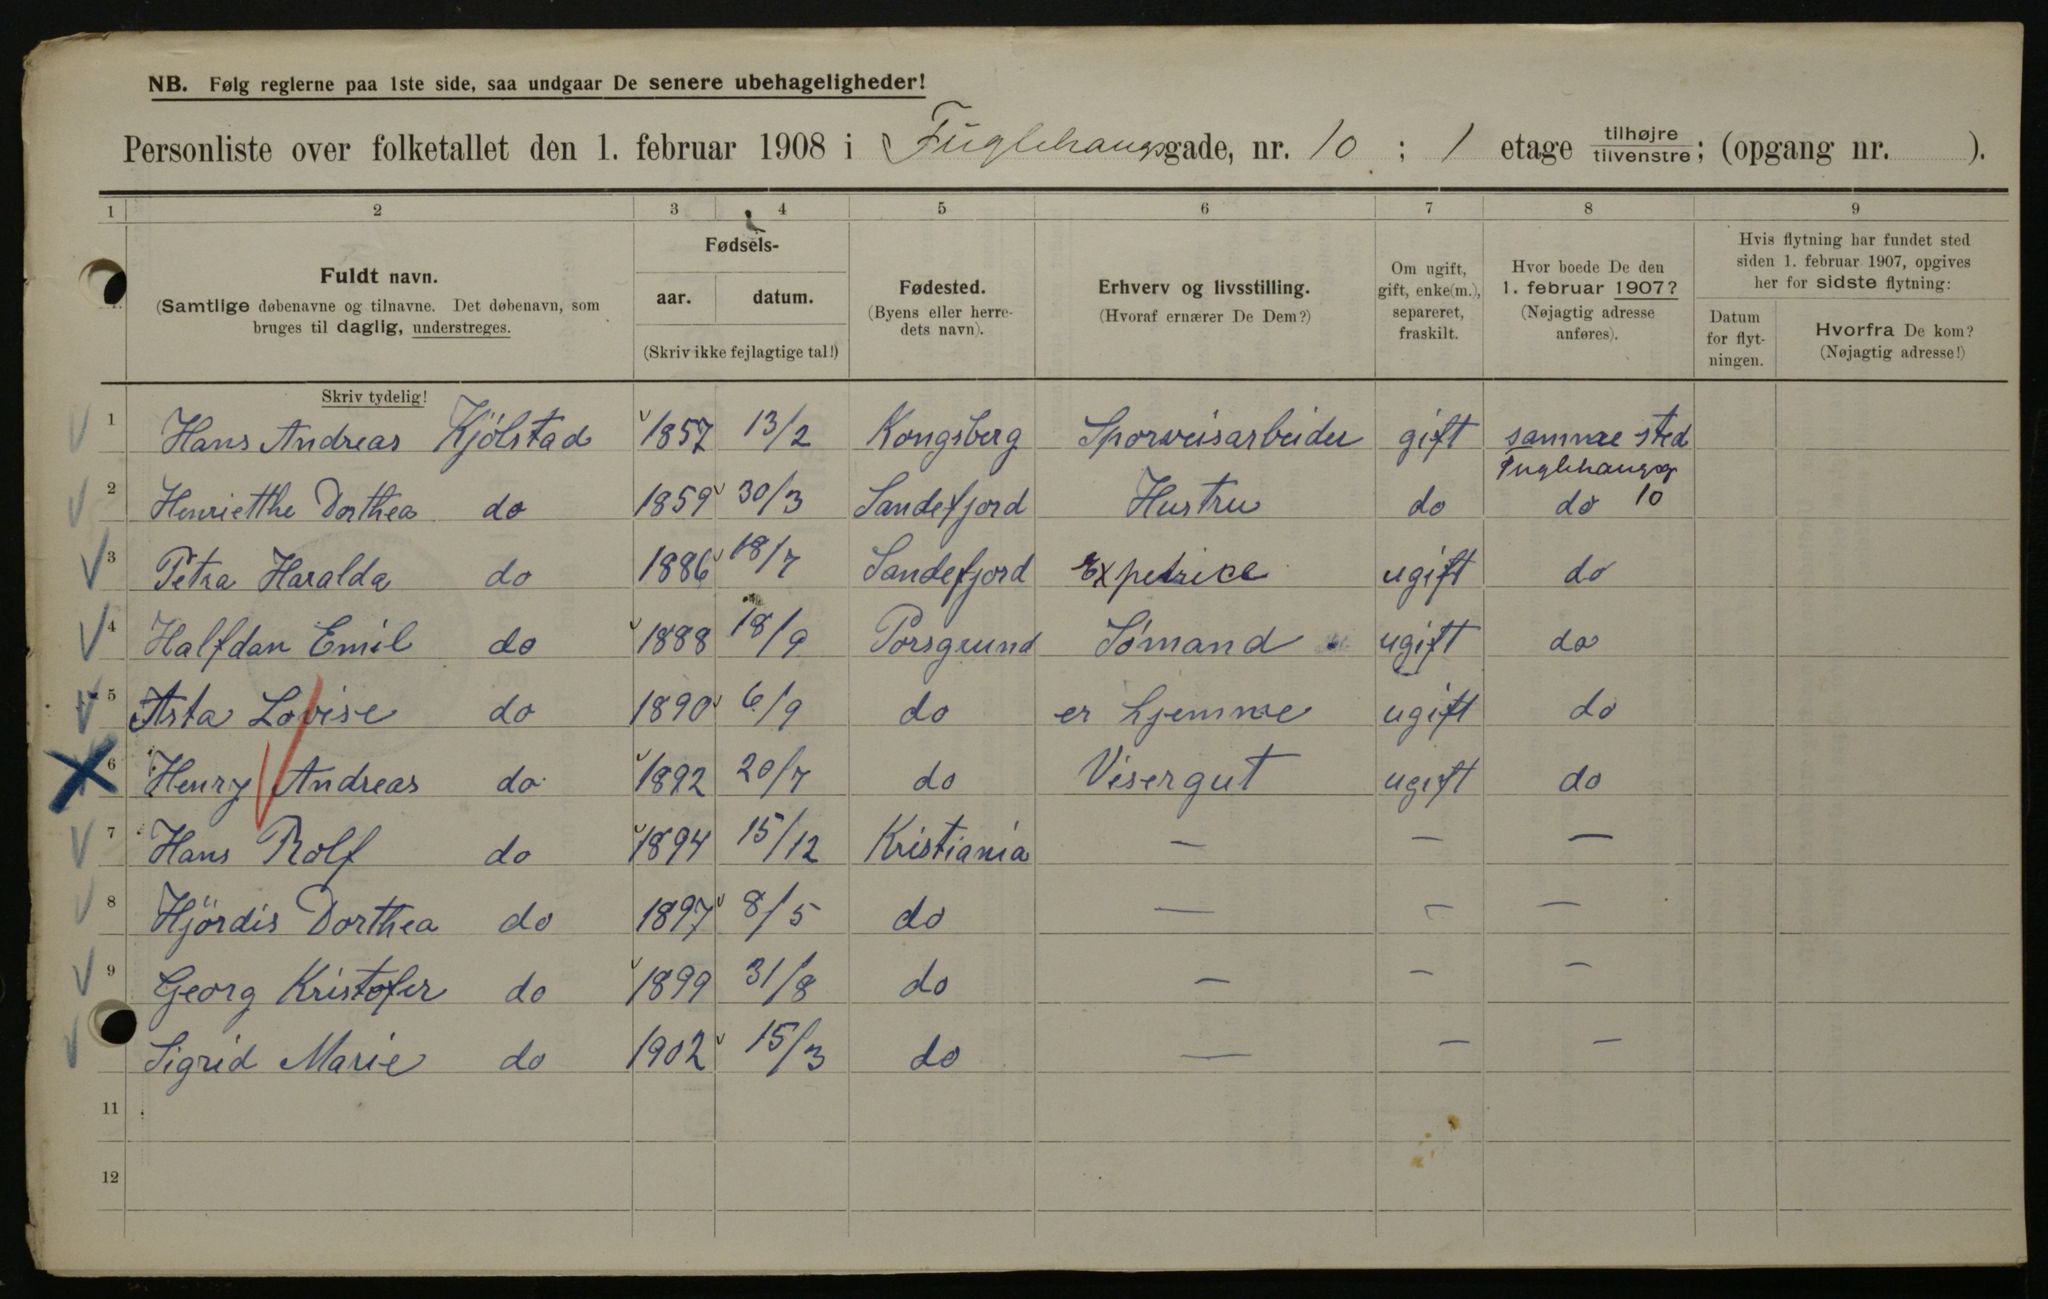 NB. Følg reglerne paa 1ste side, saa undgaar De senere ubehageligheder!
Personliste over folketallet den 1. februar 1908 i Fuglehaugsgade, nr. 10 ; 1 etage tilhøjre/tilvenstre; (opgang nr. ).
1 2 3 4 5 6 7 8 9
Fuldt navn.
(Samtlige døbenavne og tilnavne. Det døbenavn, som
bruges til daglig, understreges.
Fødsels-
aar. datum.
(Skriv ikke fejlagtige tal!)
Fødested.
(Byens eller herre-
dets navn).
Erhverv og livsstilling.
(Hvoraf ernærer De Dem?)
Om ugift,
gift, enke(m.),
separeret,
fraskilt.
Hvor boede De den
1. februar 1907?
(Nøjagtig adresse
anføres).
Hvis flytning har fundet sted
siden 1. februar 1907, opgives
her for sidste flytning:
Datum
for flyt-
ningen.
Hvorfra De kom?
(Nøjagtig adresse!)
Skriv tydelig!
1 Hans Andreas Kjölstad 1857 13/2 Kongsberg Sporveisarbeider gift samme sted
Fuglehausg
2 Henrietthe Dorthea do 1859 30/3 Sandefjord Hustru do do 10
3 Petra Haralda do 1886 18/7 Sandefjord Expetrice ugift do
4 Halfdan Emil do 1888 18/9 Porsgrund Sömand ugift do
5 Asta Lovise do 1890 6/9 do er hjemme ugift do
6 Henry Andreas do 1892 20/7 do Visergut ugift do
7 Hans Rolf do 1894 15/12 Kristiania — — —
8 Hjördis Dorthea do 1897 8/5 do — — —
9 Georg Kristofer do 1899 31/8 do — — —
Sigrid Marie do 1902 15/3 do — — —
11
12